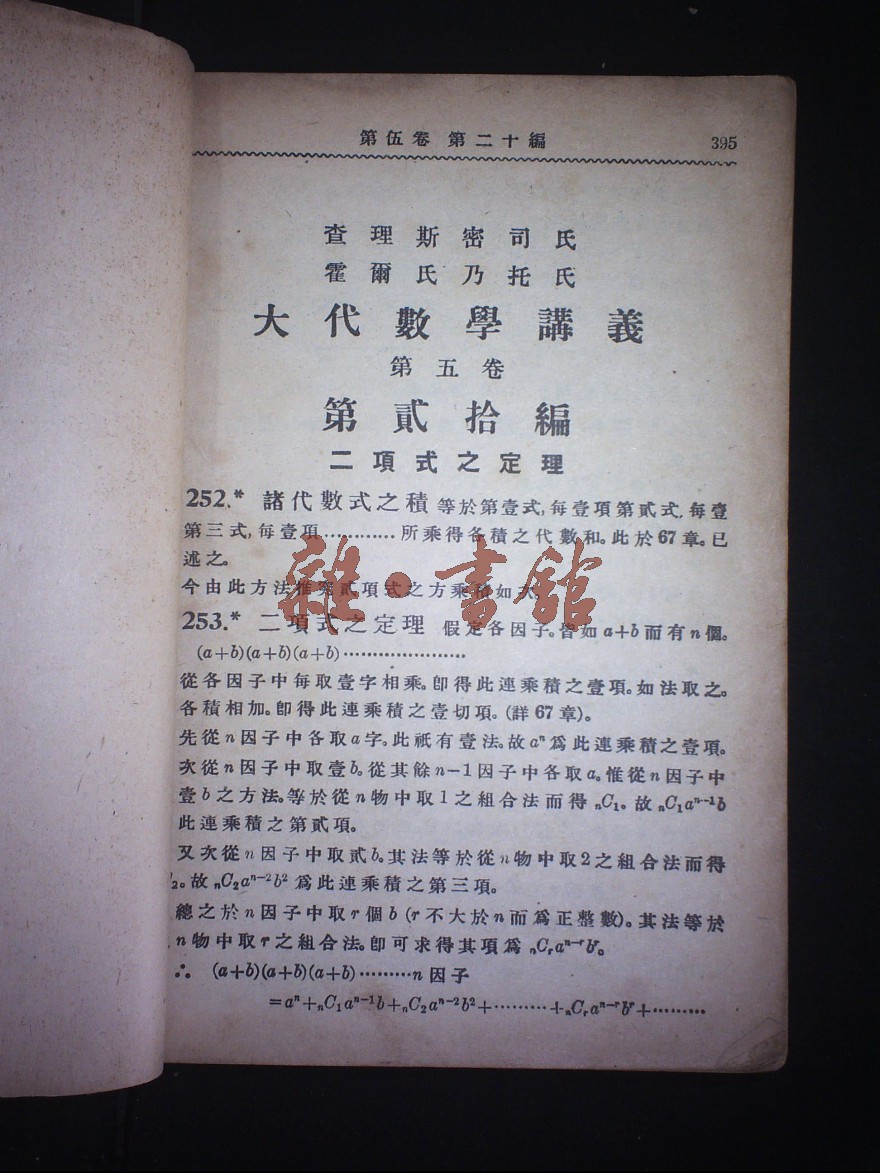 第伍卷 第二十編 395
查理斯密司氏
霍爾氏乃托氏
大代數學講義
第五卷
第貳拾編
二項式之定理
252.* 諸代數式之積 等於第壹式,每壹項第貳式,每壹
第三式,每壹項…………所乘得各積之代數和。此於67章。已
述之。
今由此方法推究貳項式之方乘積如次。
雜·書館
253.* 二項式之定理 假定各因子。皆如a+b而有n個。
(a+b)(a+b)(a+b)……………………
從各因子中每取壹字相乘。卽得此連乘積之壹項。如法取之。
各積相加。卽得此連乘積之壹切項。(詳67章)。
先從n因子中各取a字。此祇有壹法。故aⁿ爲此連乘積之壹項。
次從n因子中取壹b。從其餘n-1因子中各取a。惟從n因子中
壹b之方法。等於從n物中取1之組合法而得ₙC₁。故ₙC₁aⁿ⁻¹b
此連乘積之第貳項。
又次從n因子中取貳b。其法等於從n物中取2之組合法而得
₂。故ₙC₂aⁿ⁻²b²爲此連乘積之第三項。
總之於n因子中取r個b(r不大於n而爲正整數)。其法等於
n物中取r之組合法。卽可求得其項爲ₙCᵣaⁿ⁻ʳbʳ。
∴ (a+b)(a+b)(a+b)………n因子
=aⁿ+ₙC₁aⁿ⁻¹b+ₙC₂aⁿ⁻²b²+………+ₙCᵣaⁿ⁻ʳbʳ+………